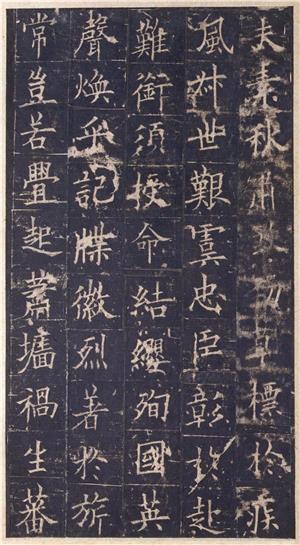 夫素秋肅草標於疾
風叔世艱虞忠臣彰於赴
難銜須授命結纓殉國英
聲煥乎記牒徽烈著於旂
常豈若舋起蕭墻禍生蕃